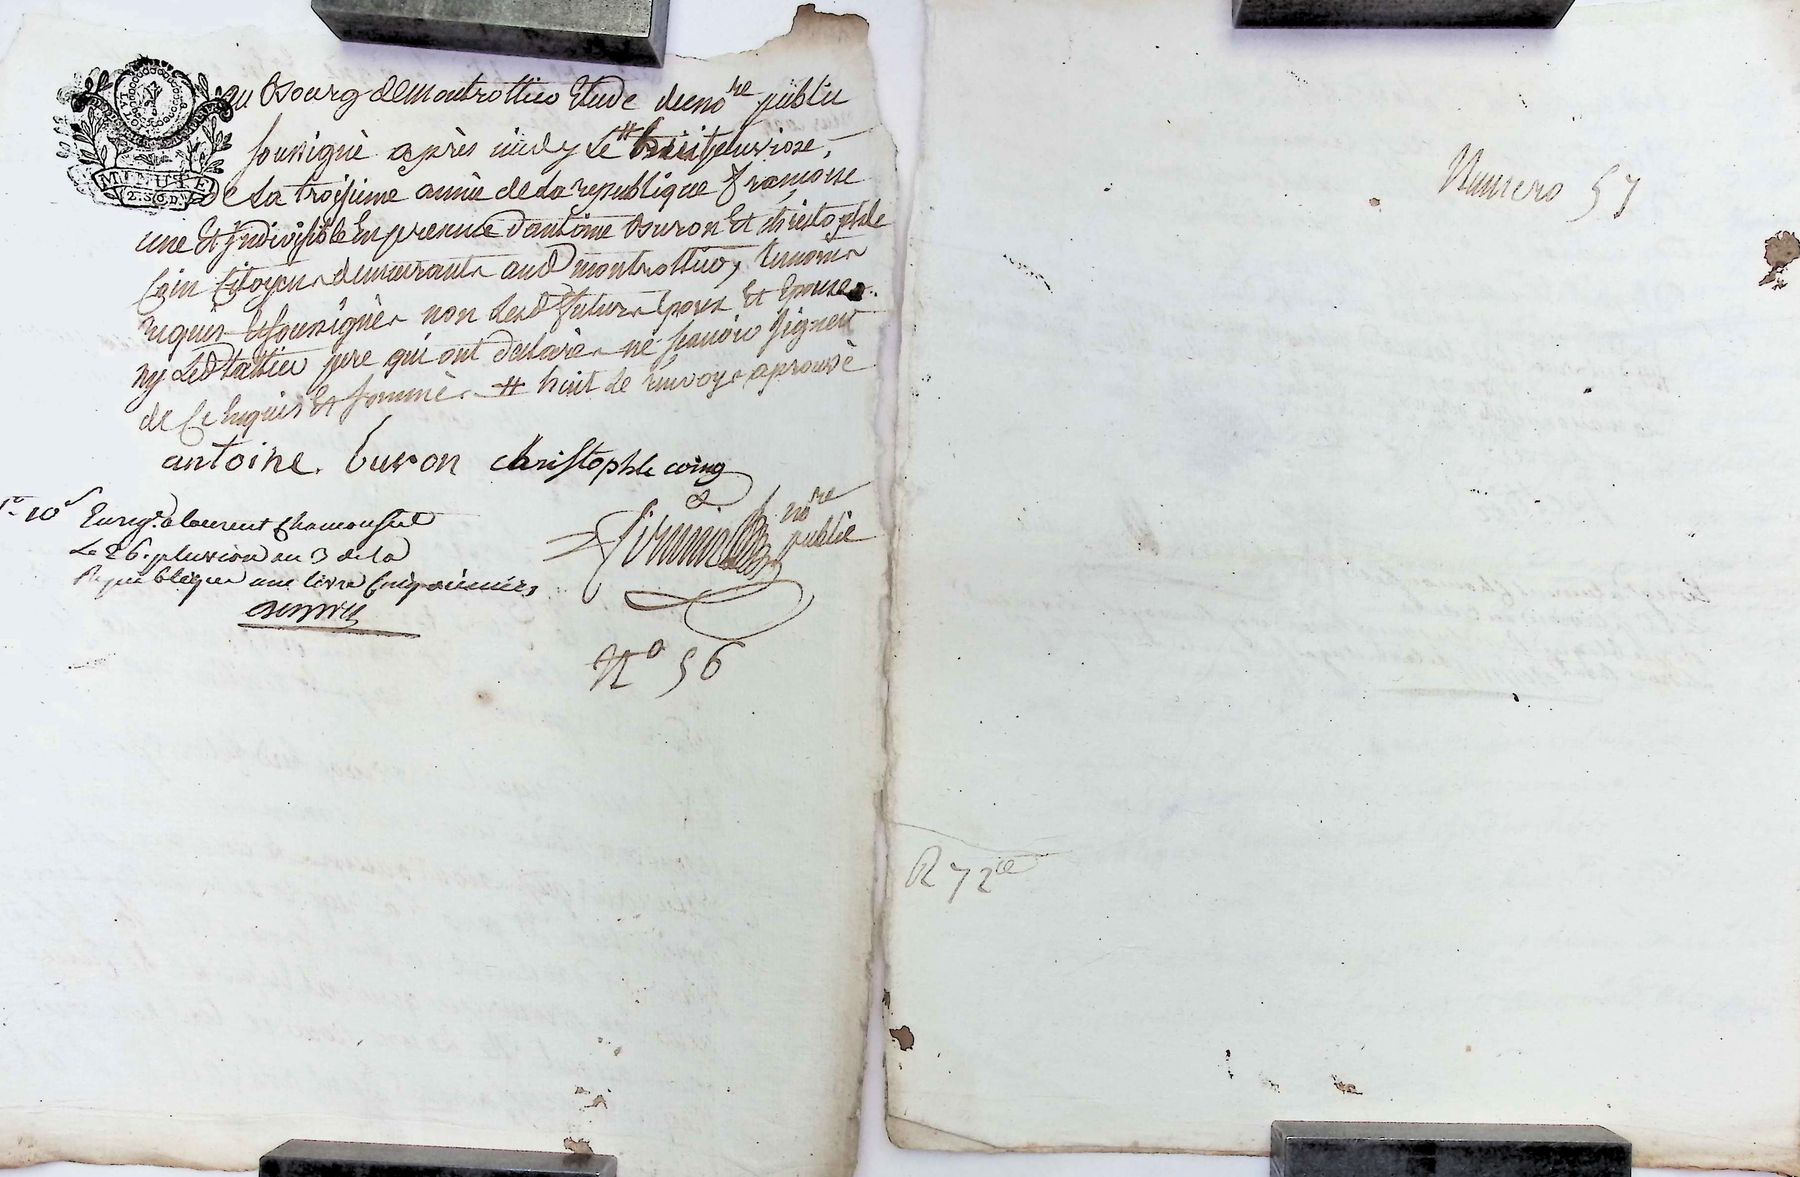 MINUTE
2. S. 6. D.
au Bourg de montrottier Etude du no.re public
soussigné après midy le # huit pluviose,
de la troisieme année de la republique francoise
une Et Jndivisible En presence d'antoine Buron Et christophle
Coin Citoyens demeurants aud montrottier, temoins
requis Et soussignés non lesd futurs Epoux Et Epouse
ny led pere qui ont declarés ne scavoir signer
de Ce Enquis Et sommés # huit de renvoy aprouvé
antoine. buron christophle coing
no.re
public
1# 10s Enreg.é a laurent Chamousset
Le 26. pluviose an 3 de la
Republique une livre Cinq
N° 56
Numero 57
R 72